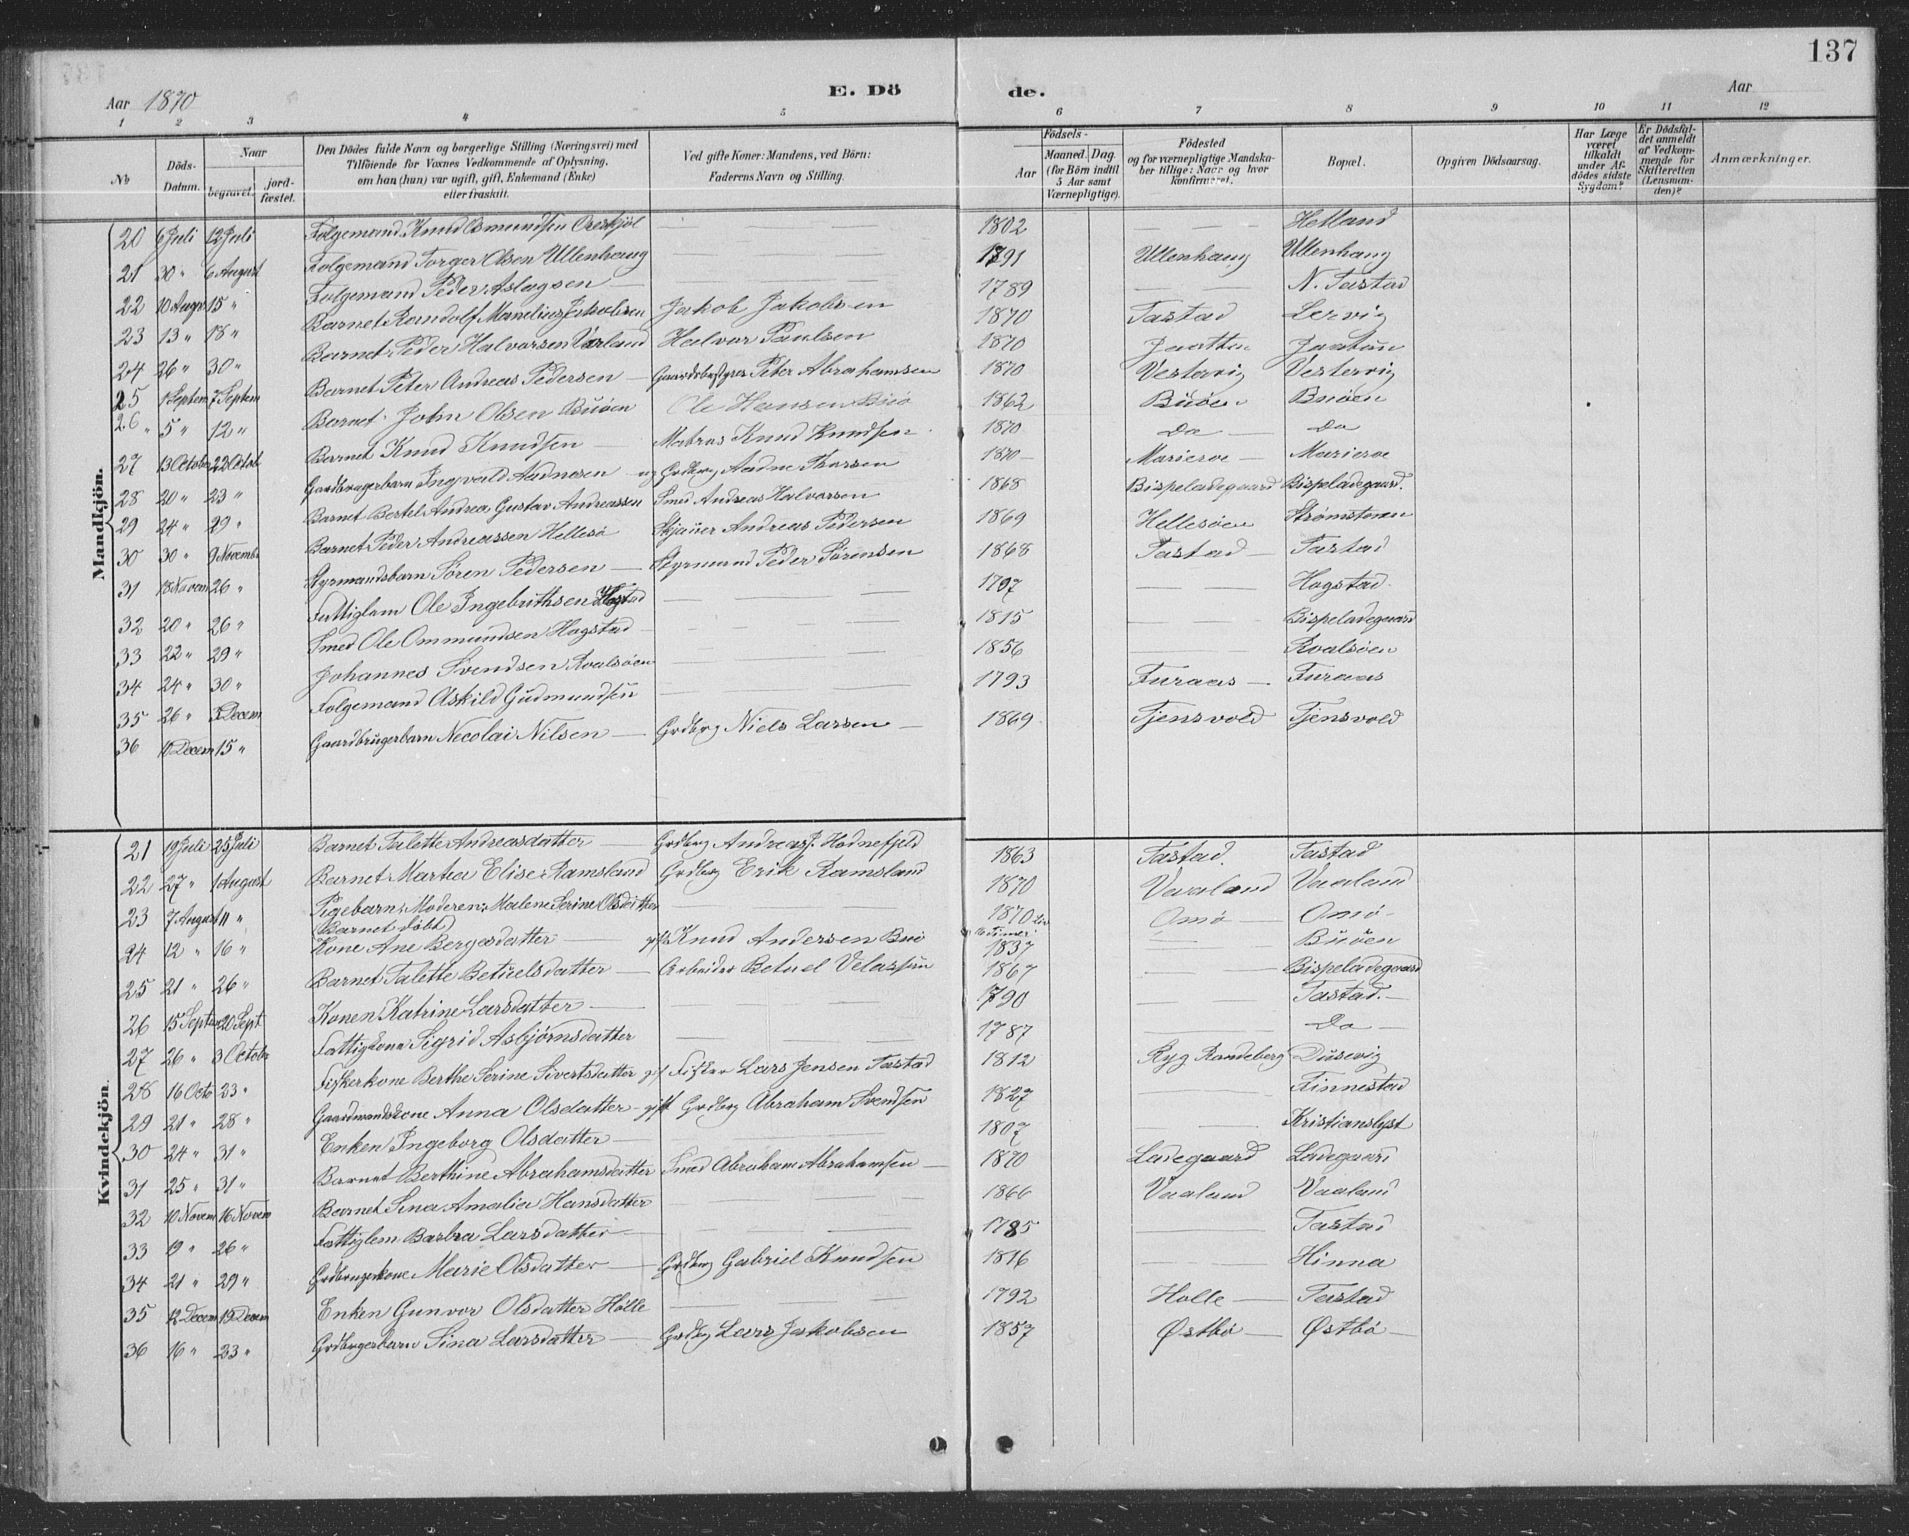 137
Aar 1870 E. Dö de. Aar
1 2 3 4 5 6 7 8 9 10 11 12
No Döds-Datum. Naar begravet. jord-fæstet. Den Dödes fulde Navn og borgerlige Stilling (Næringsvei) med Tilföiende for Voxnes Vedkommende af Oplysning, om han (hun) var ugift, gift, Enkemand (Enke) eller fraskilt. Ved gifte Koner: Mandens, ved Börn: Faderens Navn og Stilling. Födsels- Aar Maaned. Dag. (for Börn indtil 5 Aar samt Værnepligtige). Födested og for værnepligtige Mandskaber tillige: Naar og hvor konfirmeret. Bopæl. Opgiven Dödsaarsag. Har Læge været tilkaldt under Afdödes sidste Sygdom? Er Dödsfaldet anmeldt af Vedkommende for Skifteretten (Lensmanden)? Anmærkninger.
Mandkjön.
20 6 Juli 12 Juli Folgemand Knud Osmundsen — — 1802 — — Hetland
21 30 " 6 August Folgemand Torger Olsen Ullenhaug — — 1791 Ullenhaug Ullenhang
22 10 Augs 15 " Folgemand Peder Aslagsen — — 1789 — — N. Tastad
23 13 " 18 " Barnet Randolf Manelius Jakobsen Jakob Jakobsen 1870 Tastad Lervig
24 26 " 30 " Barnet Peder Halvorsen Halvor Paulsen 1870 Jaatten Jaatun
25 1 Septem 7 Septem Barnet Peter Andreas Pedersen — Gaardsbestyrer Peter Abrahamsen 1870 Vestervig Vestervig
26 5 " 12 " Barnet John Olsen Buöen Ole Hansen Buö 1862 Buöen Buöen
27 13 October 22 Octob Barnet Knud Knudsen — Matros Knud Knudsen 1870 Do — Do
28 20 " 23 " Gaardbrugerbarn Ingvald Aadnesen — Grdbrg Aadne Thorsen 1870 — Marieroe — Marieroe
29 24 " 29 " Barnet Bertel Andrea Gustav Andreassen Smed Andreas Halvorsen 1868 Bispeladegaard Bispeladegaard.
30 30 " 9 Novembr Barnet Peder Andreassen Hellesö Skjauer Andreas Pedersen 1869 Hellesöen Strömstenen
31 18 Novem 26 " Styrmandsbarn Sören Pedersen — Styrmand Peder Sörensen 1868 Tastad — Tastad
32 20 " 26 " Fattiglem Ole Ingebrithsen Hogstad — — 1797 — — Hogstad
33 22 " 29 " Smed Ole Ommundsen Hagstad — — 1815 — — Bispeladegaard
34 24 " 30 " Johannes Svendsen Roalsöen — — 1856 — — Roalsöen
35 26 " 3 Decem Folgemand Askild Gudmundsen — — 1793 Furaas — Furaas
36 10 Decem 15 " Gaardbrugerbarn Necolai Nilsen — Grdbrg Niels Larsen — 1869 Tjensvold Tjensvold
Kvindekjön.
21 19 Juli 25 Juli Barnet Talette Andreasdatter — Grdbrg Andreas J. Hodnefjeld 1863 Tastad. Tastad
22 27 " 1 August Barnet Martha Elise Ramsland Grdbrg Erik Ramsland 1870 Vaaland Vaaland
23 7 August 11 " Pigebarn, Moderen: Malene Serine Olsdatter — — 1870 Omö — Omö —
(Barnet döbt)
24 12 " 16 " Kone Ane Bergesdatter — gift Knud Andersen Buö 1837 — Buöen
25 21 " 26 " Barnet Talette Betuelsdatter — Arbeider Betuel 1867 — Bispeladegaard
26 15 Septem 20 Sept Konen Katrine Larsdatter — — 1790 — Tastad. —
27 26 " 3 Octobr Fattigkone Sigrid Asbjörnsdatter — 1787 — Do —
28 16 Octo 23 " Fiskerkone Berthe Serine Sivertsdatter gf Fisker Lars Jensen Tastad 1812 Ryg Randeberg Dusevig
29 21 " 28 " Gaardmandskone Anna Olsdatter — gift Grdbrg Abraham Svendsen 1827 — — Finnestad
30 24 " 31 " Enken Ingeborg Olsdatter — — 1807 — — Kristianslyst
31 25 " 31 " Barnet Berthine Abrahamsdatter Smed Abraham Abrahamsen — 1870 Ladegaard Ladegaard
32 10 Novem 16 Novem Barnet Sina Amalia Hansdatter — — 1866 Vaaland Vaaland
33 19 " 26 " Fattiglem Barbra Larsdatter — — 1785 — Tastad
34 21 " 29 " Grdbrugerkone Marie Olsdatter — Grdbrg Gabriel Knudsen 1816 — — Hinna
35 12 Decem 19 Decem Enken Gunvor Olsdatter Hölle — — 1792 Holle — Tastad
36 16 " 23 " Grdbrugerbarn Sina Larsdatter — Grdbrg Lars Jakobsen 1857 Østbö — Østbö —